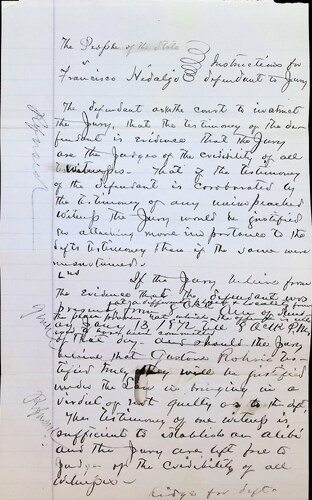 The People of the State
vs Instructions for
Francisco Hidalgo defendant to Jury
The defendant asks the court to instruct
the Jury, that the testimony of the de
fendant is evidence that the Jury
are the Judges of the credibility of all
witnesses. That if the testimony
of the defendant is corroborated by
the testimony of any unimpeached
witness the Jury would be justified
in attaching more importance to the
defts testimony than if the same were
unsustained.
2nd If the Jury believe from
the evidence that the defendant was
on Jany 13, 1872 till 8 Oclk P.M.
of that day and should the Jury
believe that Gustave Rohrig tes
tified truly they will be justified
under the Law in bringing in a
verdict of not guilty as to the deft.
The testimony of one witness is
sufficient to establish an alibi
and the Jury are left free to
judge of the credibility of all
witnesses
for deft
Refused